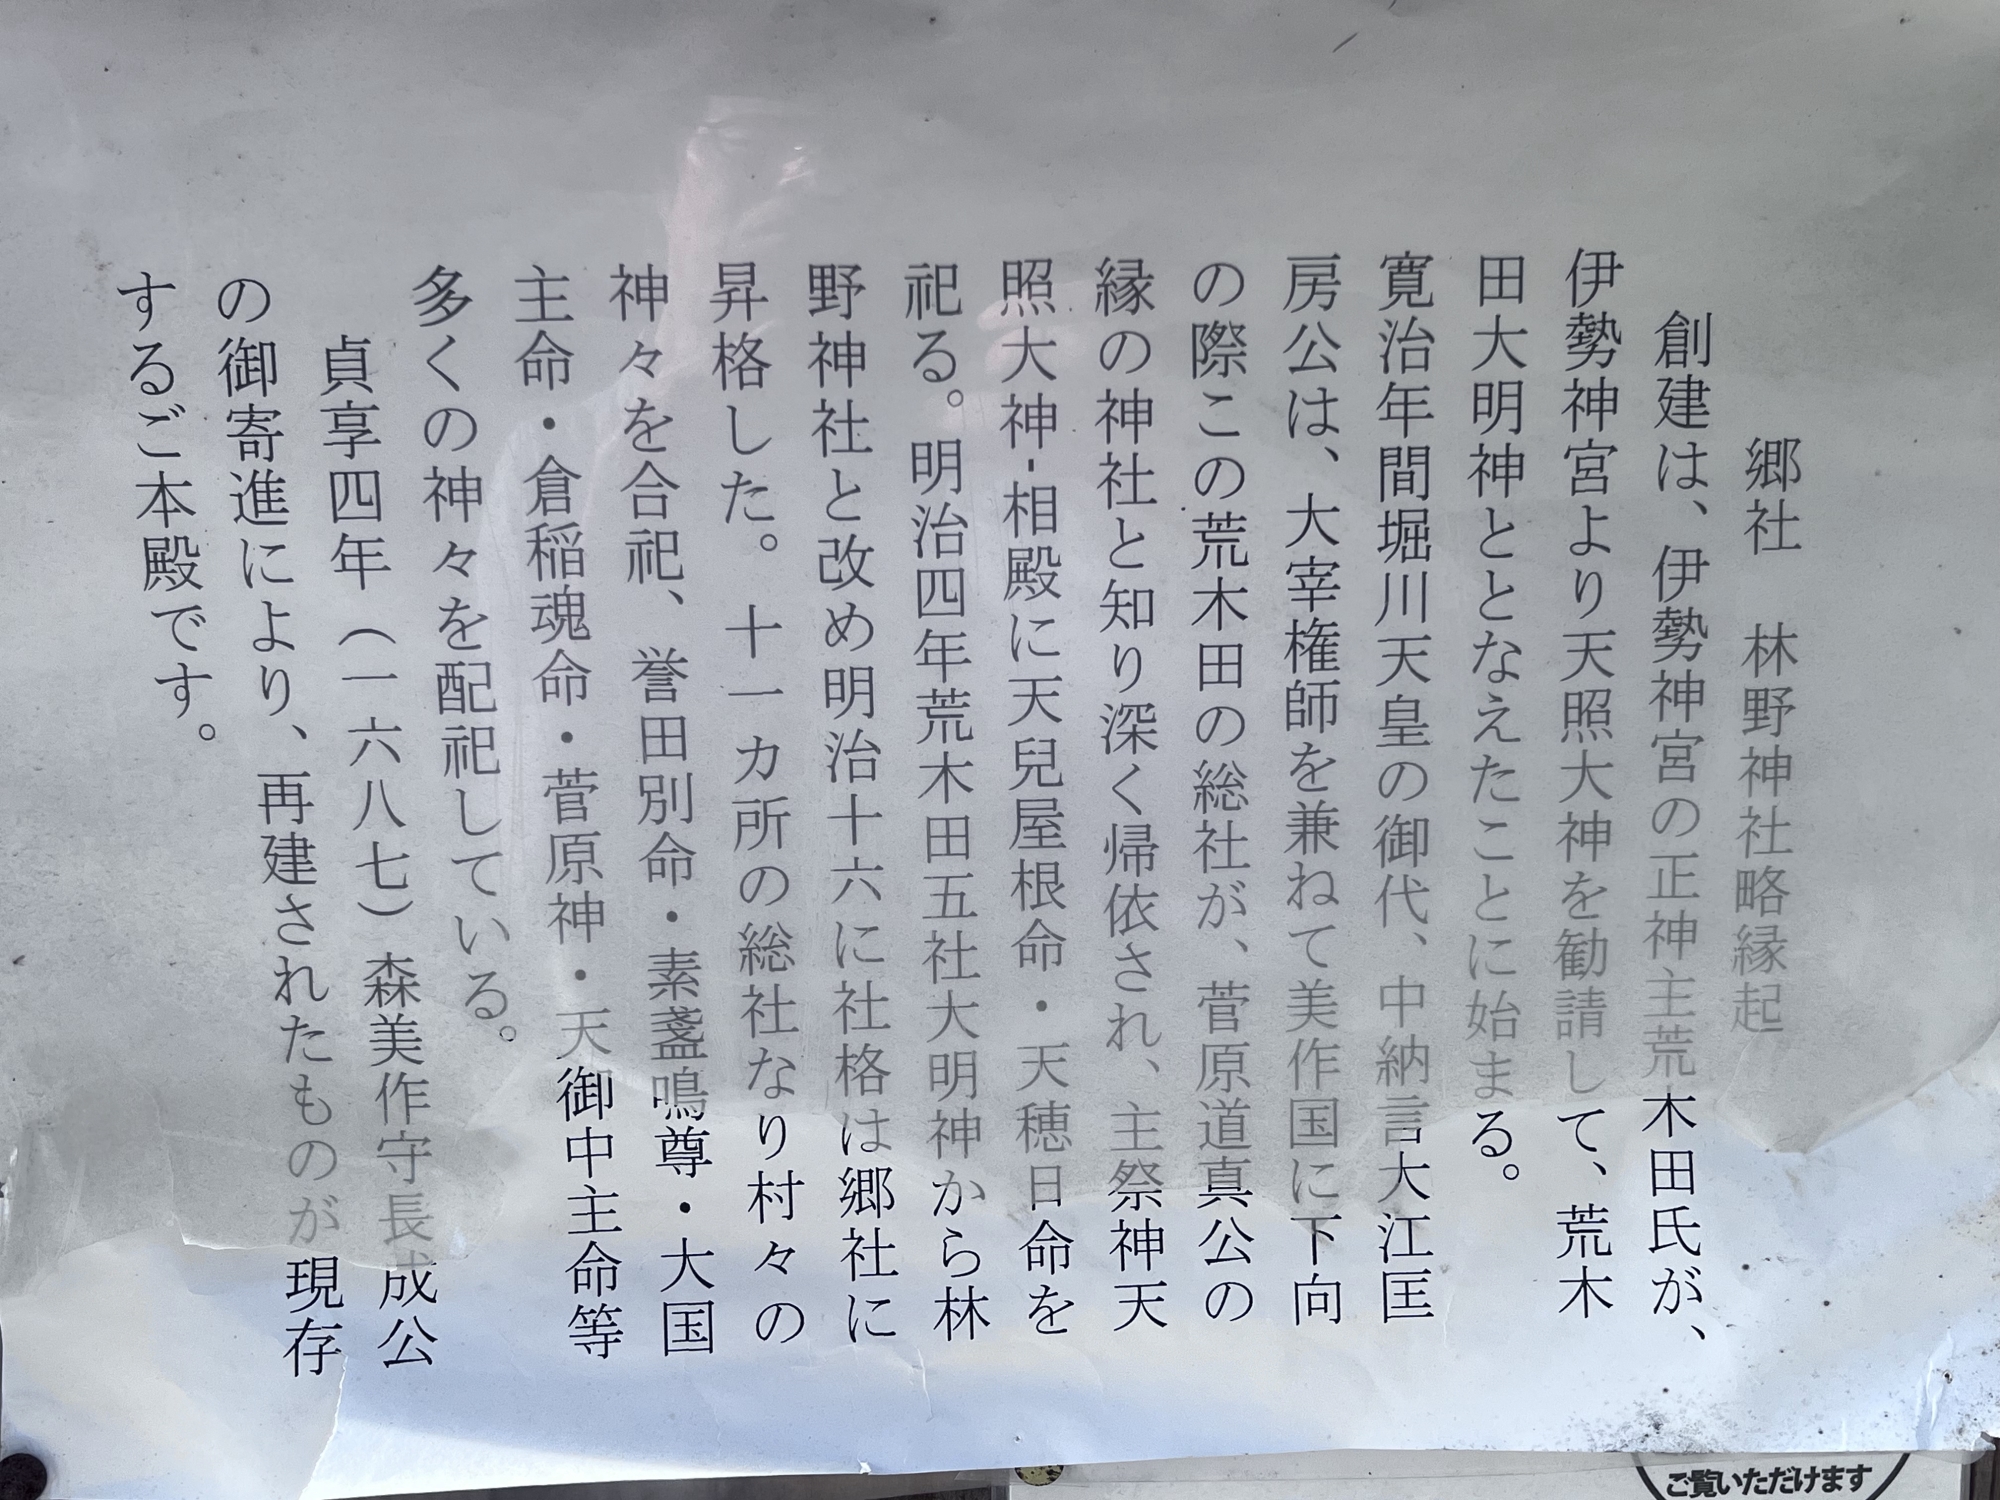 郷社　林野神社略縁起
創建は、伊勢神宮の正神主荒木田氏が、
伊勢神宮より天照大神を勧請して、荒木
田大明神ととなえたことに始まる。
寛治年間堀川天皇の御代、中納言大江匡
房公は、大宰権師を兼ねて美作国に下向
の際この荒木田の総社が、菅原道真公の
縁の神社と知り深く帰依され、主祭神天
照大神-相殿に天兒屋根命・天穂日命を
祀る。明治四年荒木田五社大明神から林
野神社と改め明治十六に社格は郷社に
昇格した。十一カ所の総社なり村々の
神々を合祀、誉田別命・素盞鳴尊・大国
主命・倉稲魂命・菅原神・天御中主命等
多くの神々を配祀している。
貞享四年（一六八七）森美作守長成公
の御寄進により、再建されたものが現存
するご本殿です。
ご覧いただけます